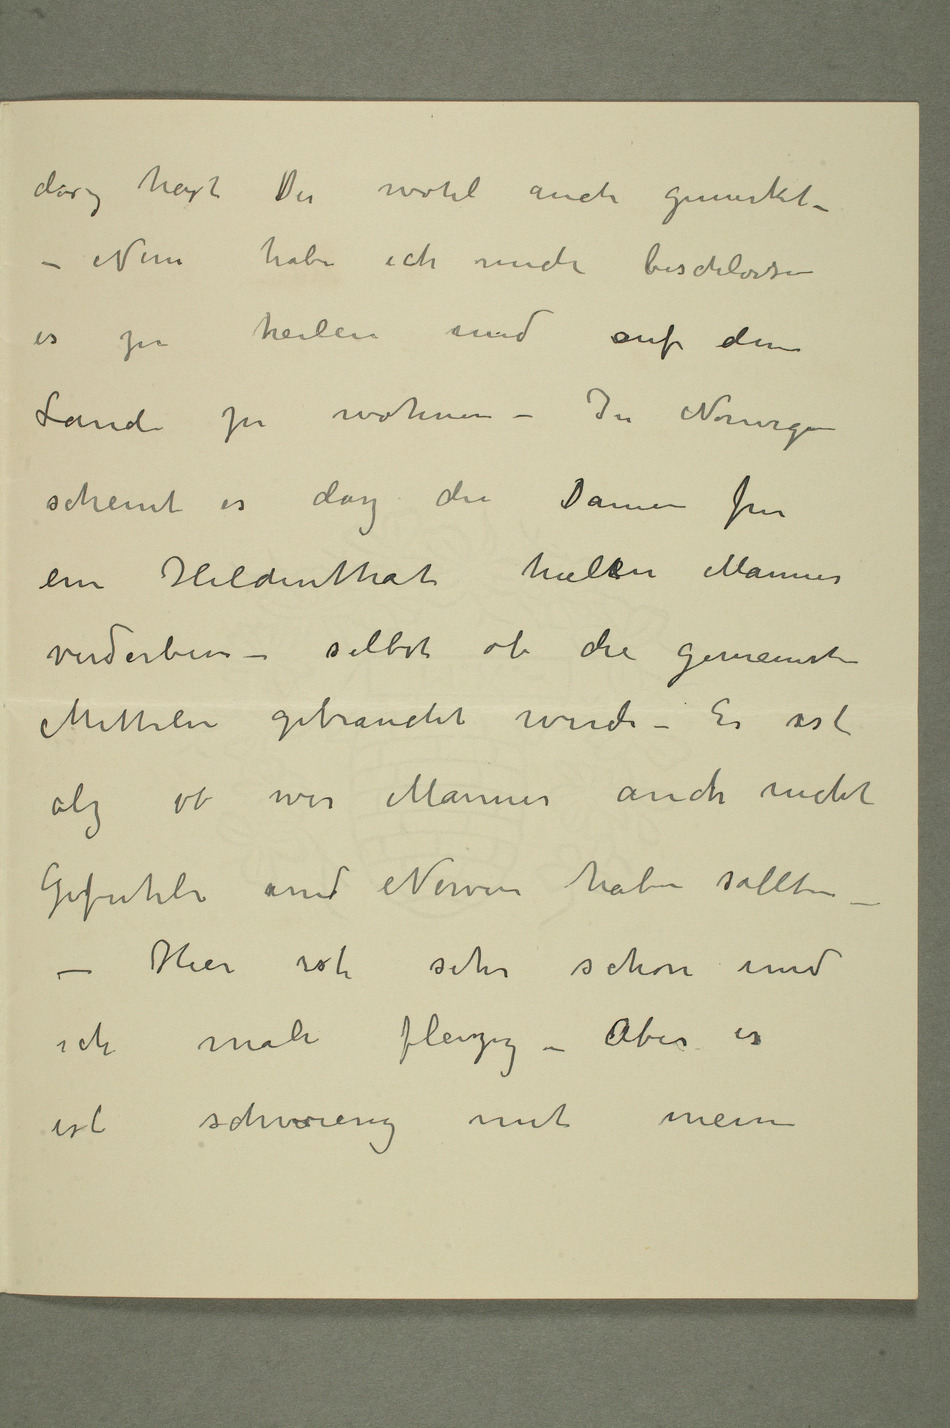 dasz hast Du wohl auch gemerkt –
– Nun habe ich mich beschlossen
es zu heilen und auf dem
Lande zu wohnen – In Norwegen
scheint es dasz die Damen für
ein Heldenthat halten Männer
verderben – selbst ob die gemeinste
Mitteln gebraucht wird – Es ist
alz ob wir Männer auch nicht
Gefühle und Nerven haben sollten –
– Hier ist sehr schön und
ich male fleizig – Aber es
ist schwierig mit mein